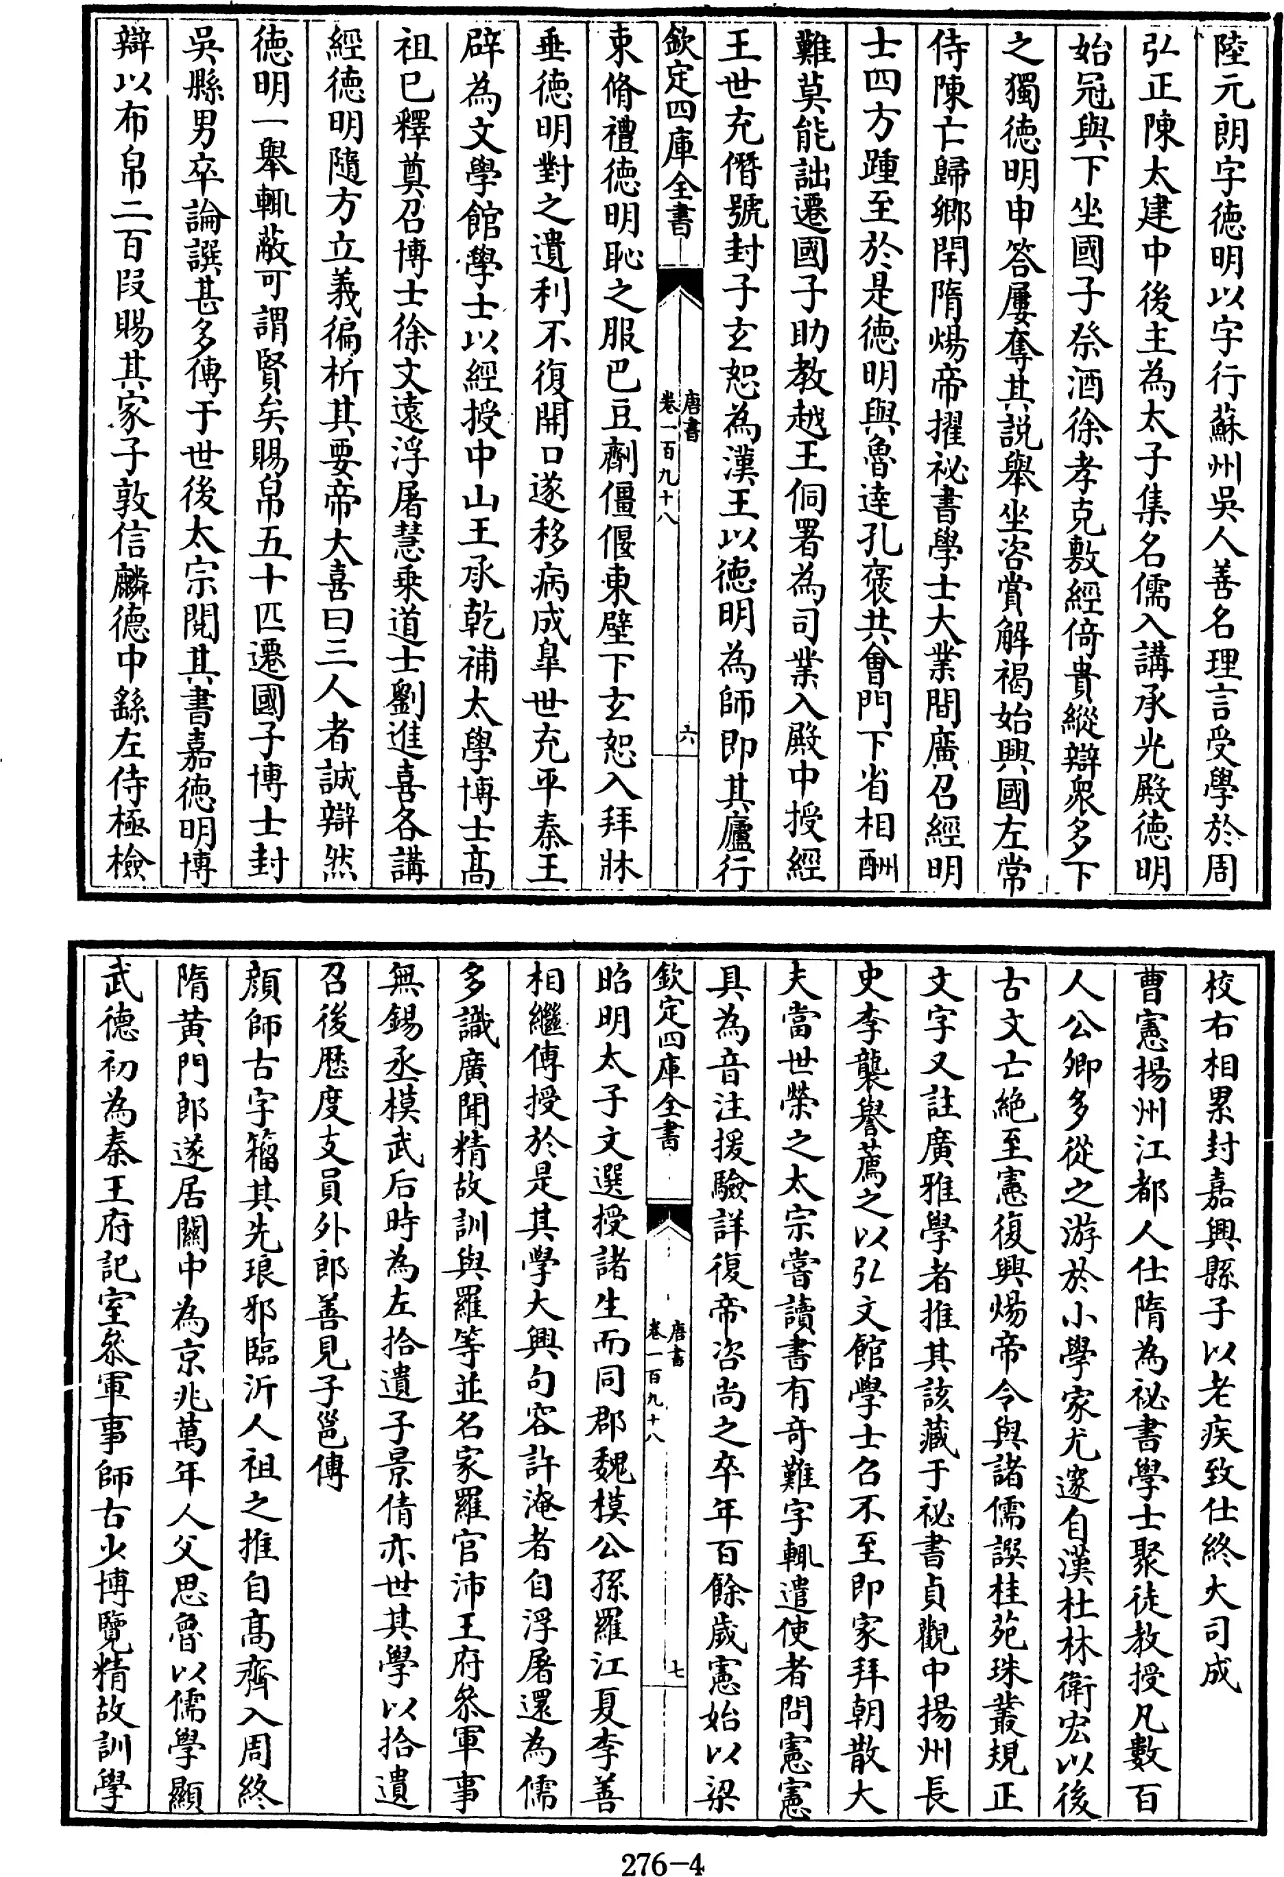 陸元朗字德明以字行蘇州吳人善名理言受學於周
弘正陳太建中後主為太子集名儒入講承光殿德明
始冠與下坐國子祭酒徐孝克敷經倚貴縱辯衆多下
之獨德明申答屢奪其説舉坐咨賞解褐始興國左常
侍陳亡歸鄉閈隋煬帝擢祕書學士大業間廣召經明
士四方踵至於是德明與魯逹孔襃共會門下省相酬
難莫能詘遷國子助教越王侗署為司業入殿中授經
王世充僭號封子玄恕為漢王以德明為師即其廬行
欽定四庫全書
唐書
卷一百九十八
六
束脩禮德明恥之服巴豆劑僵偃東壁下玄恕入拜牀
垂德明對之遺利不復開口遂移病成臯世充平秦王
辟為文學館學士以經授中山王承乾補太學博士髙
祖已釋奠召博士徐文遠浮屠慧乗道士劉進喜各講
經德明隨方立義徧析其要帝大喜曰三人者誠辯然
德明一舉輒蔽可謂賢矣賜帛五十匹遷國子博士封
吳縣男卒論譔甚多傳于世後太宗閲其書嘉德明博
辯以布帛二百段賜其家子敦信麟德中繇左侍極檢
校右相累封嘉興縣子以老疾致仕終大司成
曹憲揚州江都人仕隋為祕書學士聚徒教授凡數百
人公卿多從之游於小學家尤邃自漢杜林衛宏以後
古文亡絶至憲復興煬帝令與諸儒譔桂苑珠叢規正
文字又註廣雅學者推其該藏于祕書貞觀中揚州長
史李襲譽薦之以弘文館學士召不至即家拜朝散大
夫當世榮之太宗嘗讀書有竒難字輒遣使者問憲憲
具為音注援驗詳復帝咨尚之卒年百餘歲憲始以梁
欽定四庫全書
唐書
卷一百九十八
七
昭明太子文選授諸生而同郡魏模公孫羅江夏李善
相繼傳授於是其學大興句容許淹者自浮屠還為儒
多識廣聞精故訓與羅等並名家羅官沛王府參軍事
無錫丞模武后時為左拾遺子景倩亦世其學以拾遺
召後歷度支員外郎善見子邕傳
顔師古字籕其先琅邪臨沂人祖之推自髙齊入周終
隋黄門郎遂居關中為京兆萬年人父思魯以儒學顯
武德初為秦王府記室參軍事師古少博覽精故訓學
276-4